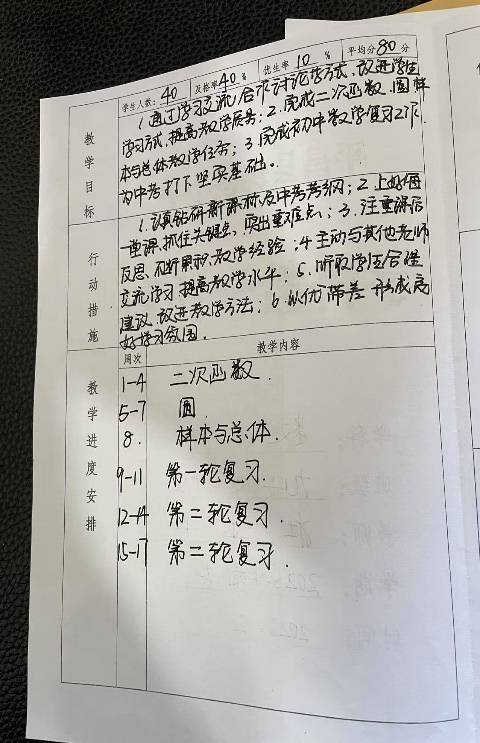 学生人数：40 及格率40% 优生率10% 平均分80分
教学目标
1.通过学习交流、合作讨论等方式，改进学生
学习方式，提高教学质量；2.完成二次函数、圆、样
本与总体教学任务；3.完成初中数学复习工作，
为中考打下坚实基础。
行动措施
1.认真钻研新课标及中考考纲；2.上好每
一堂课，抓住关键点，突出重难点；3.注重课后
反思，不断累积教学经验；4.主动与其他老师
交流学习，提高教学水平；5.听取学生合理
建议，改进教学方法；6.以优带差，形成良
好学习氛围。
教学进度安排
周次 教学内容
1-4 二次函数.
5-7 圆.
8. 样本与总体.
9-11 第一轮复习.
12-14 第二轮复习.
15-17 第二轮复习.